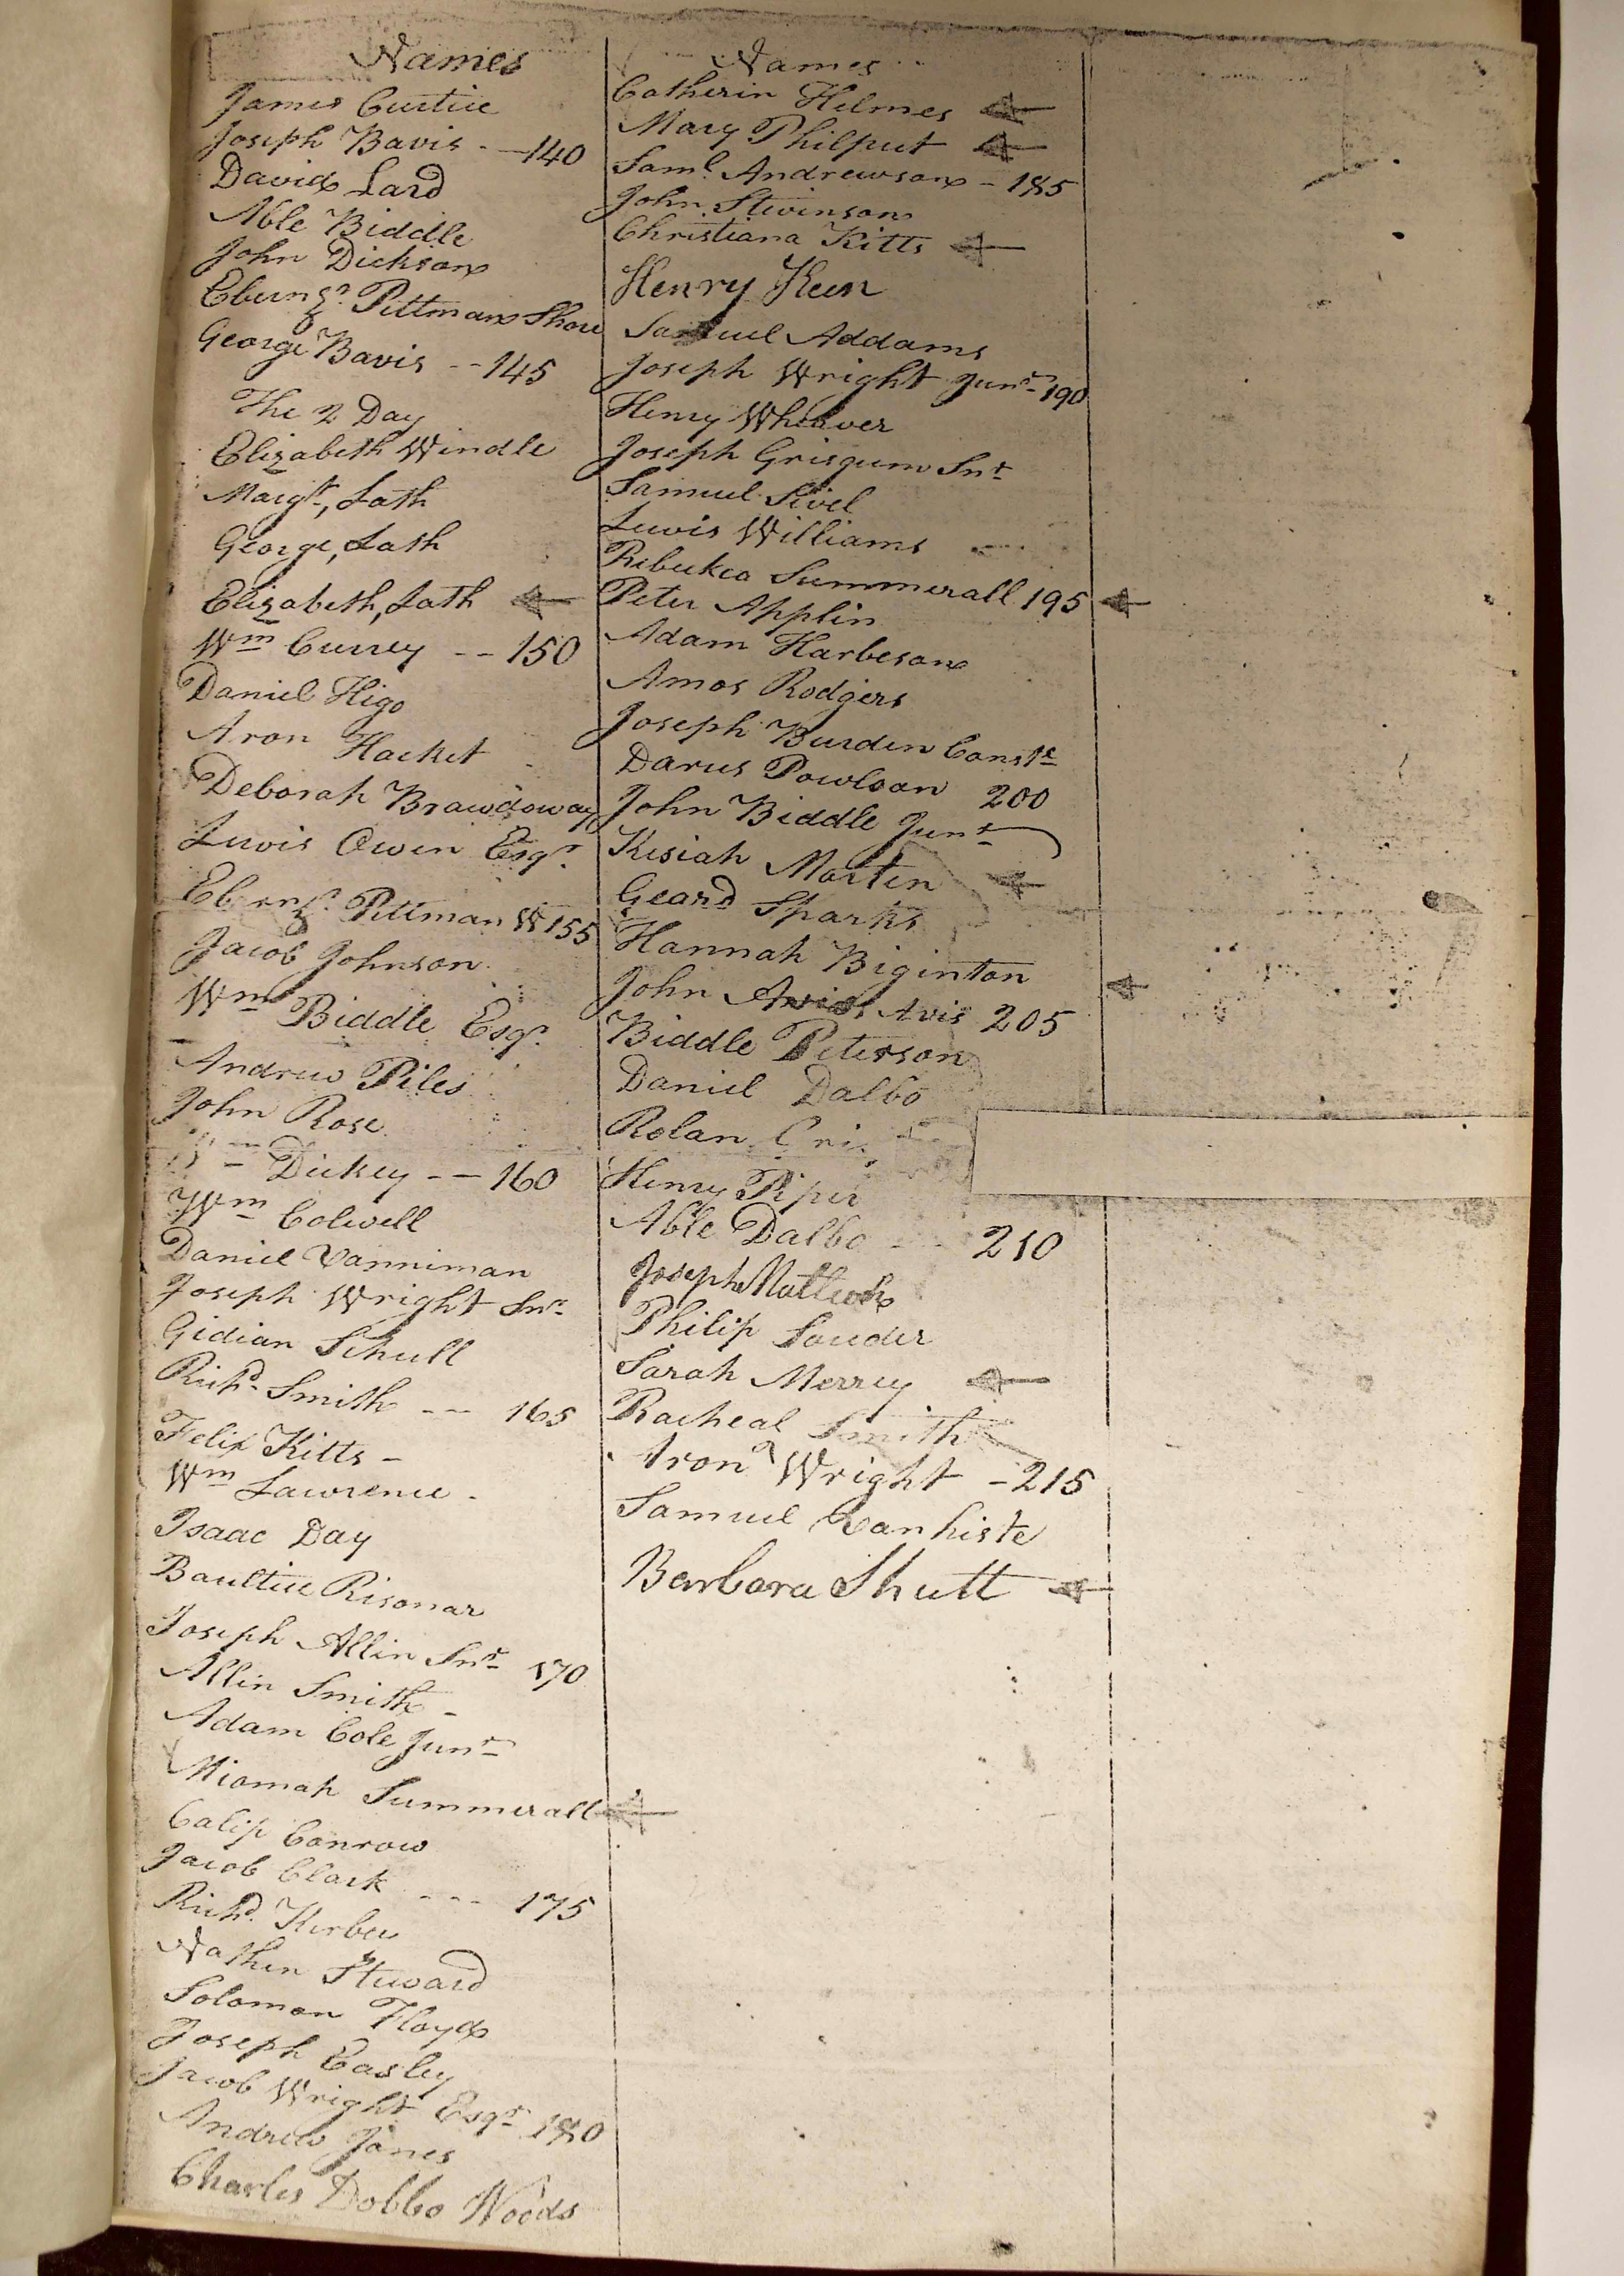 Names
James Curtice
Joseph Bavis - - 140
David Lard
Able Biddle
John Dickson
Ebenzr. Pittman Shou
George Bavis - - 145
The 2 Day
Elizabeth Windle
Margt., Lath
George, Lath
Elizabeth, Lath
Wm Currey - - 150
Daniel Higo
Aron Hacket
Deborah Brawdoway
Lewis Owen Esqr.
Ebenzr. Pittman W 155
Jacob Johnson
Wm Biddle Esqr.
Andrew Piles
John Rose
Dickey - - 160
Wm Colwell
Daniel Vanniman
Joseph Wright Snr
Gidian Schull
Richd. Smith - - 165
Felix Kitts -
Wm Lawrence -
Isaac Day
Baultice Risonar
Joseph Allin Snr 170
Allin Smith -
Adam Cole Junr
Miomah Summerall
Calip Conrow
Jacob Clark - - - 175
Richd. Kerbey
Nathen Steward
Solomon Floyd
Joseph Easley
Jacob Wright Esqr 180
Andrew Jones
Charles Dobbo Woods
Names
Catherin Helmes
Mary Philput
Saml. Andrewson - 185
John Stevinson
Christiana Kitts
Henry Keen
Samuel Addams
Joseph Wright Junr 190
Henry Wheaver
Joseph Grisgum Snr
Samuel Sivel
Lewis Williams
Rebekea Summerall 195
Peter Applin
Adam Harbeson
Amos Rodgers
Joseph Burden Constr
Darus Powloan 200
John Biddle Junr
Kesiah Marten
Geard Sparks
Hannah Biginton
John Avis 205
Biddle Peterson
Daniel Dalbo
Rolan
Henry Piper
Able Dalbo - - 210
Joseph Matlock
Philip Souder
Sarah Merrey
Racheal Smith
Aron Wright - 215
Samuel Vanhiste
Barbara Shutt